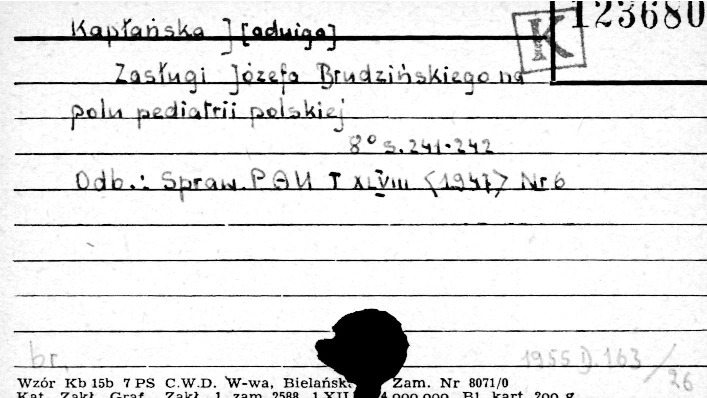 123680
K
Kapłańska J[adwiga]
Zasługi Józefa Brudzińskiego na
polu pediatrii polskiej
8° s. 241-242
Odb.: Spraw. PAU T XLVIII <1947> Nr 6
br. 1955 D. 163/26
Wzór Kb 15b 7 PS C.W.D. W-wa, Bielańsk Zam. Nr 8071/0
Kat. Zakł. Graf. Zakł. 1 zam. 2588 1.XII 4.000.000 Bl. kart. 200 g